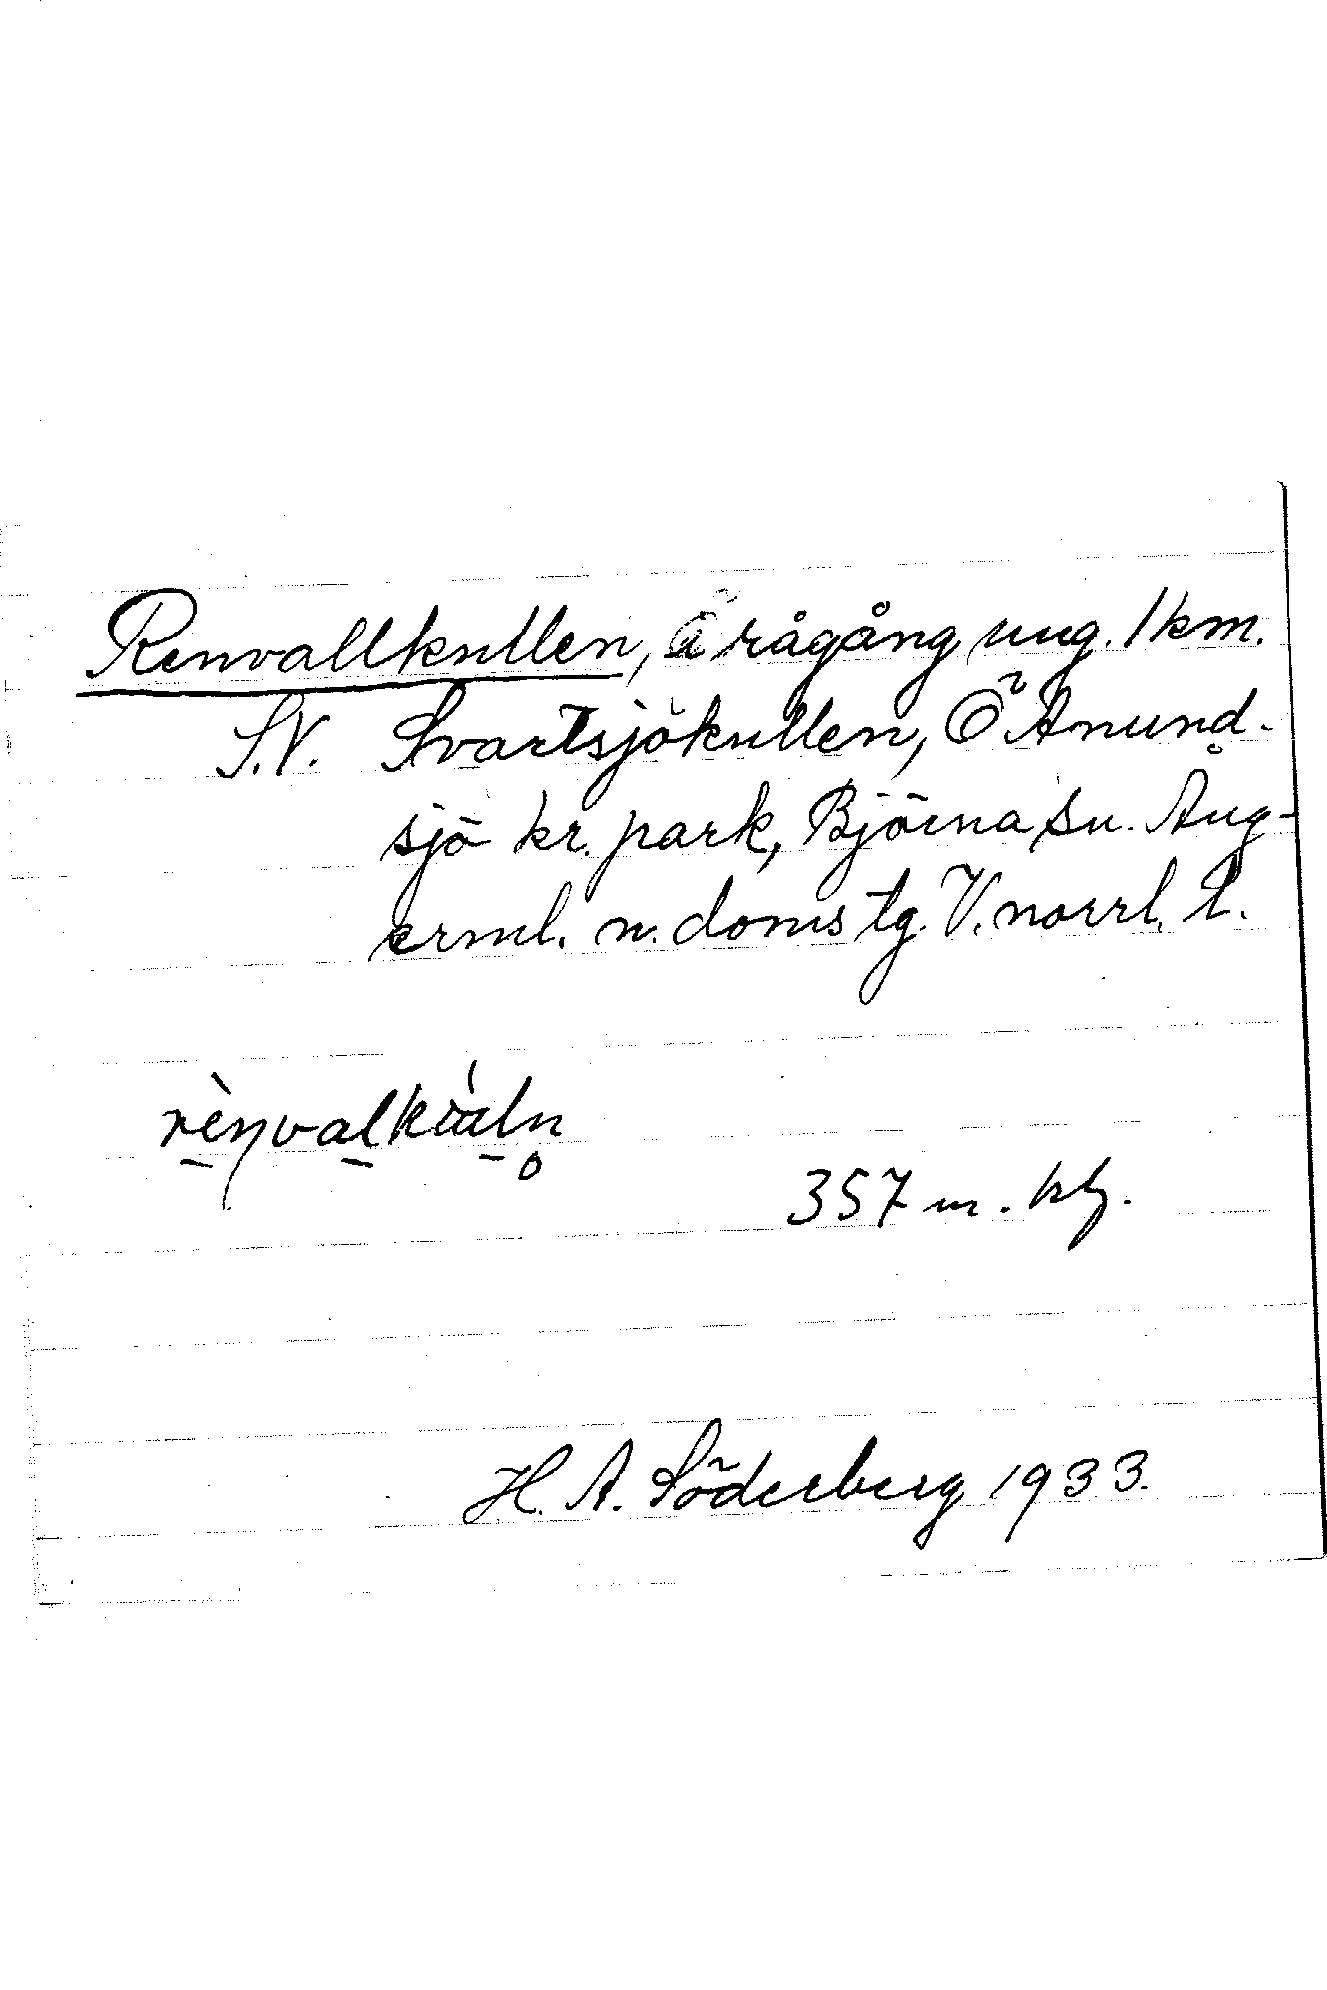 Renvallkullen, å rågång ung. 1 km.
S.V. Svartsjökullen, Ö Anund-
sjö kr. park, Björna sn. Ång-
erml. n. doms tg. V. norrl. l.
357 m.
H. A. Söderberg 1933.